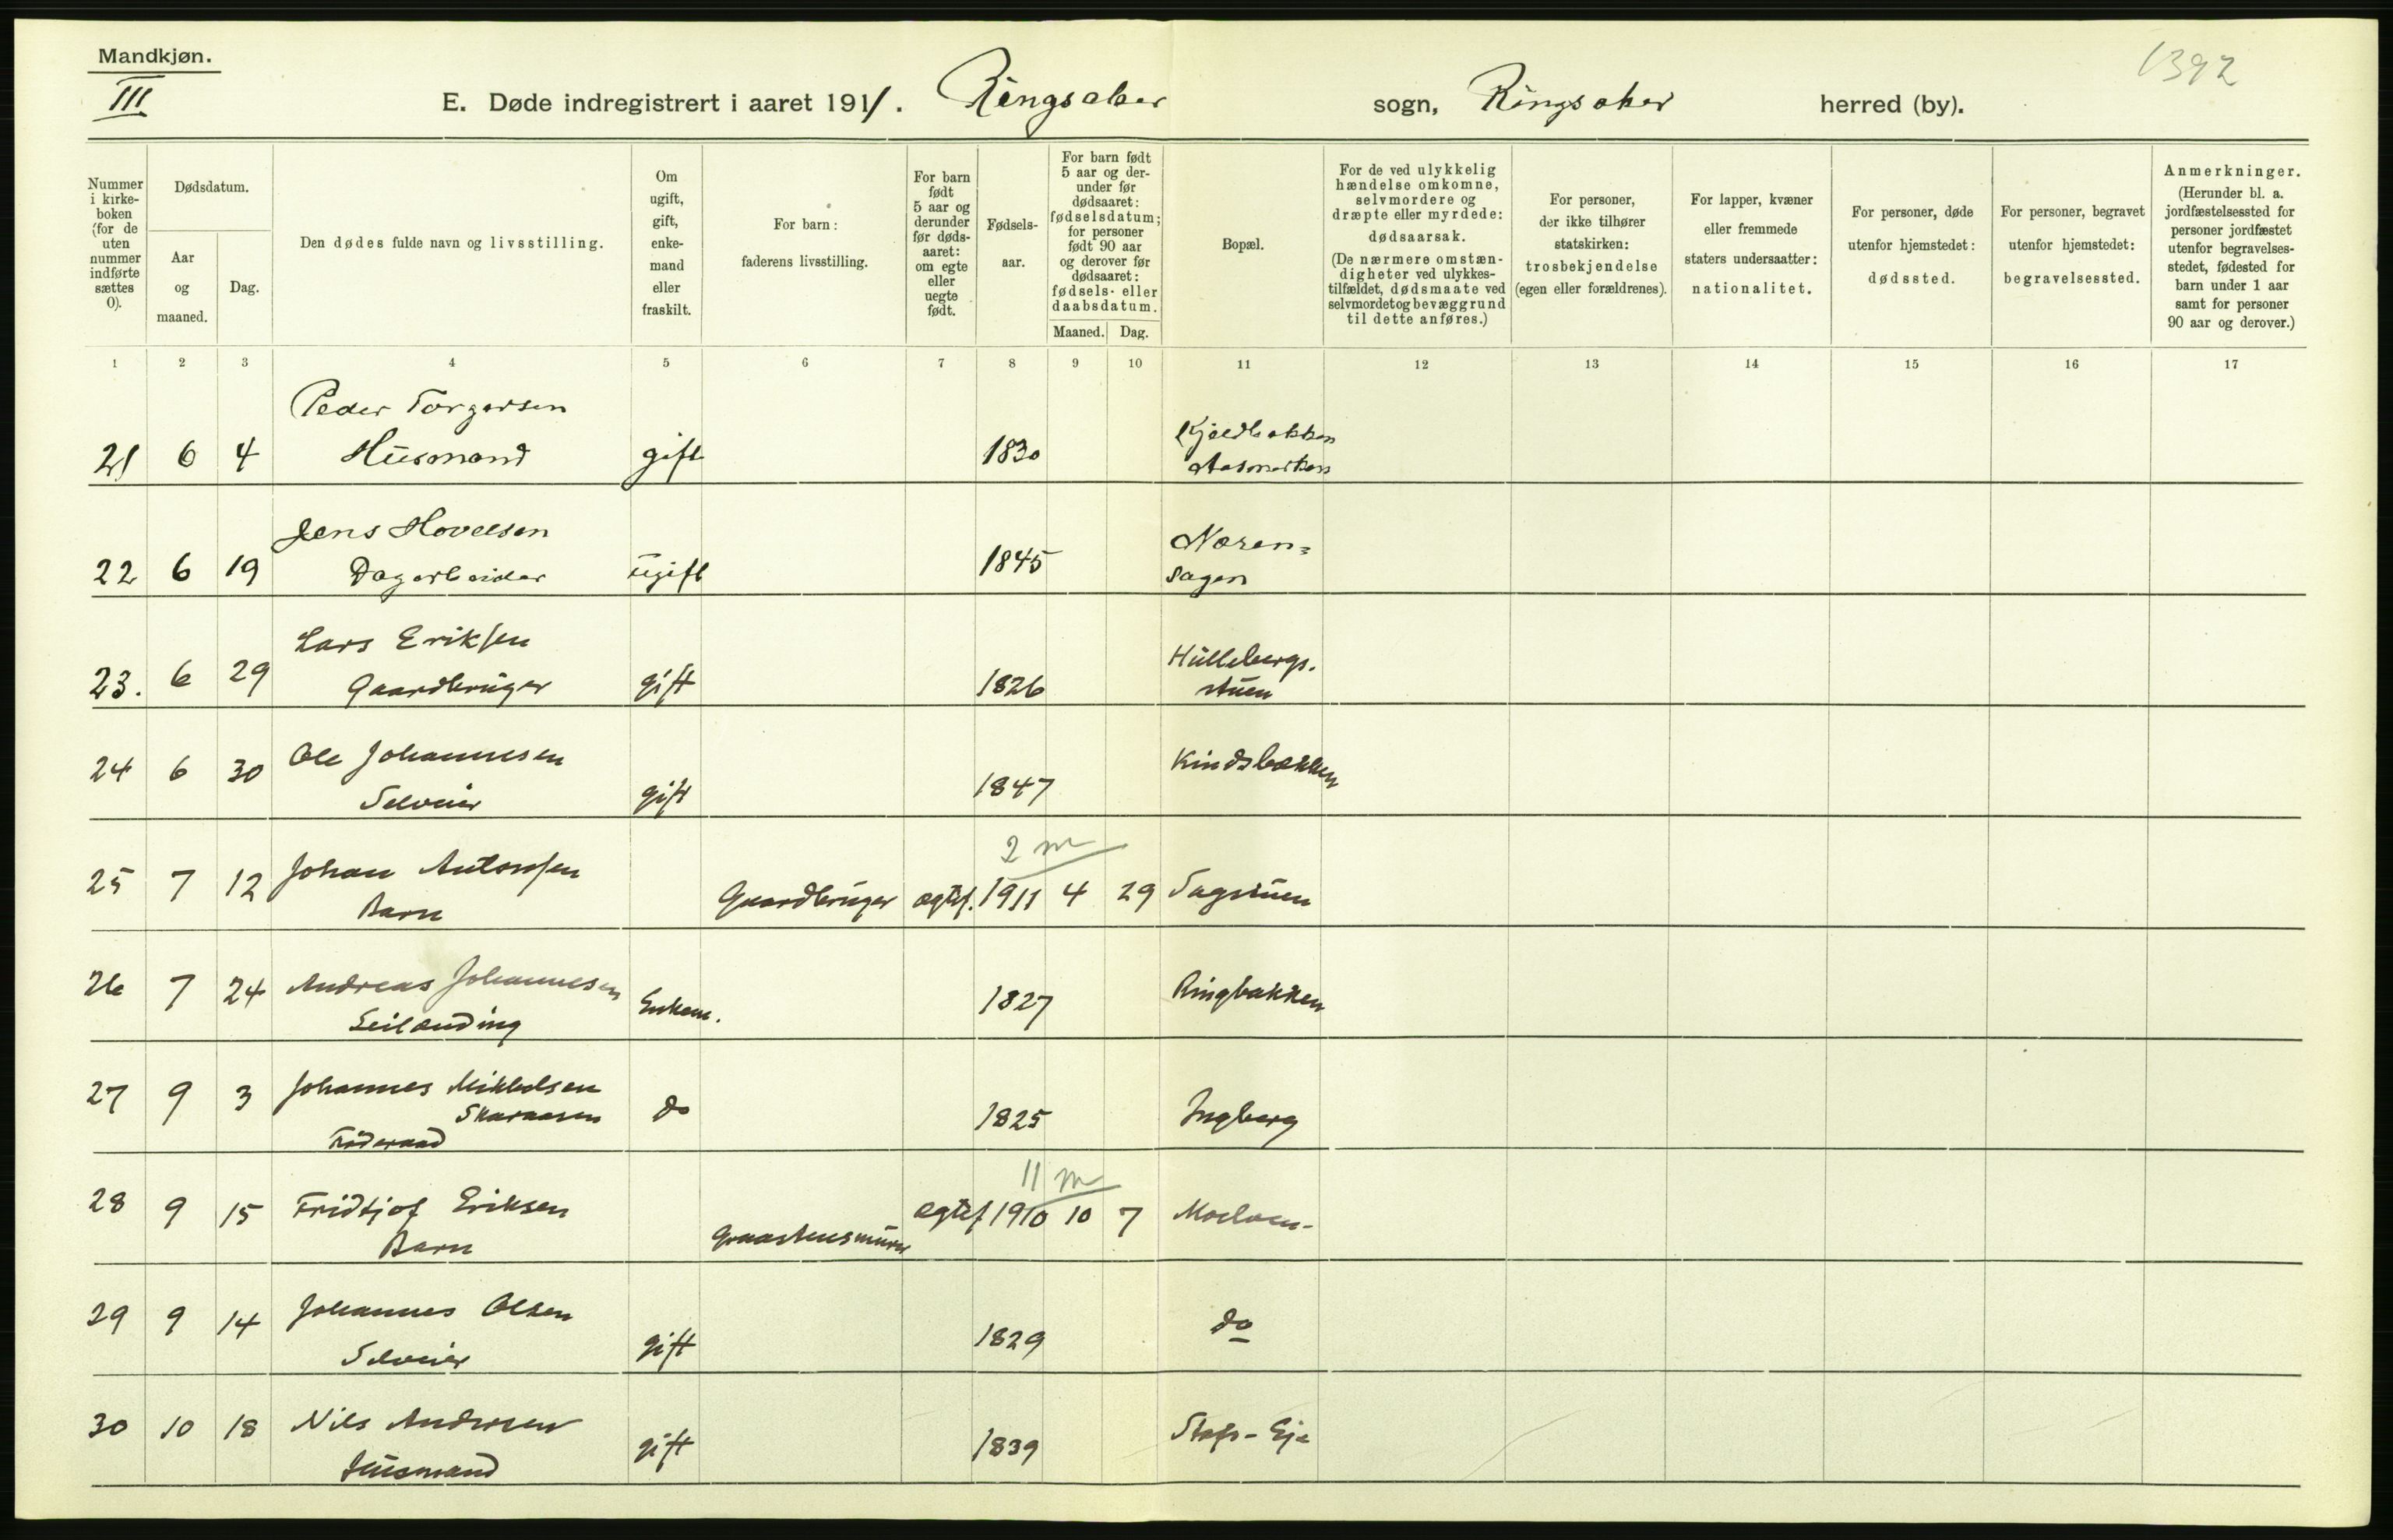 Mandkjøn.
III
1392
E. Døde indregistrert i aaret 1911. Ringsaker sogn, Ringsaker herred (by).
Nummer i kirke-boken (for de uten nummer indførte sættes 0).
Dødsdatum.
Aar og maaned.
Dag.
Den dødes fulde navn og livsstilling.
Om ugift, gift, enke-mand eller fraskilt.
For barn: faderens livsstilling.
For barn født 5 aar og derunder før døds-aaret: om egte eller uegte født.
Fødsels-aar.
For barn født 5 aar og der-under før dødsaaret: fødselsdatum; for personer født 90 aar og derover før dødsaaret: fødsels- eller daabsdatum.
Maaned. Dag.
Bopæl.
For de ved ulykkelig hændelse omkomne, selvmordere og dræpte eller myrdede: dødsaarsak. (De nærmere omstæn-digheter ved ulykkes-tilfældet, dødsmaate ved selvmordet og bevæggrund til dette anføres.)
For personer, der ikke tilhører statskirken: trosbekjendelse (egen eller forældrenes).
For lapper, kvæner eller fremmede staters undersaatter: nationalitet.
For personer, døde utenfor hjemstedet: dødssted.
For personer, begravet utenfor hjemstedet: begravelsessted.
Anmerkninger. (Herunder bl. a. jordfæstelsessted for personer jordfæstet utenfor begravelses-stedet, fødested for barn under 1 aar samt for personer 90 aar og derover.)
1 2 3 4 5 6 7 8 9 10 11 12 13 14 15 16 17
Peder Torgersen
21 6 4 Husmand gift 1830 Kjeldbakken
Aasmarken
Jens Hovelsen Næren-
22 6 19 Dagarbeider ugift 1845 sagen
Lars Eriksen
23. 6 29 Gaardbruger gift 1826 Hullebergs.
stuen
24 6 30 Ole Johannesen Kindsbakken
Selveier gift 1847
2 m
25 7 12 Johan Antonsen
Barn Gaardbruger ægtef. 1911 4 29 Sagstuen
26 7 24 Andreas Johannesen Enkem. 1827 Ringbakken
Leilænding
27 9 3 Johannes Mikkelsen
Skaraasen do 1825 Ingberg
Föderaad
11 m
28 9 15 Fridtjof Eriksen ægtef 1910 10 7 Moelven-
Barn Graastensmurer
29 9 14 Johannes Olsen do
Selveier gift 1829
30 10 18 Nils Andersen Stafs-Eje
Husmand gift 1839